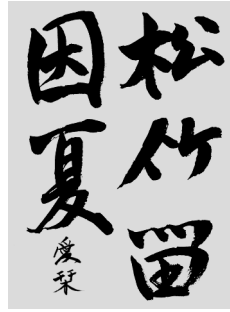 松竹留
因夏
愛栞